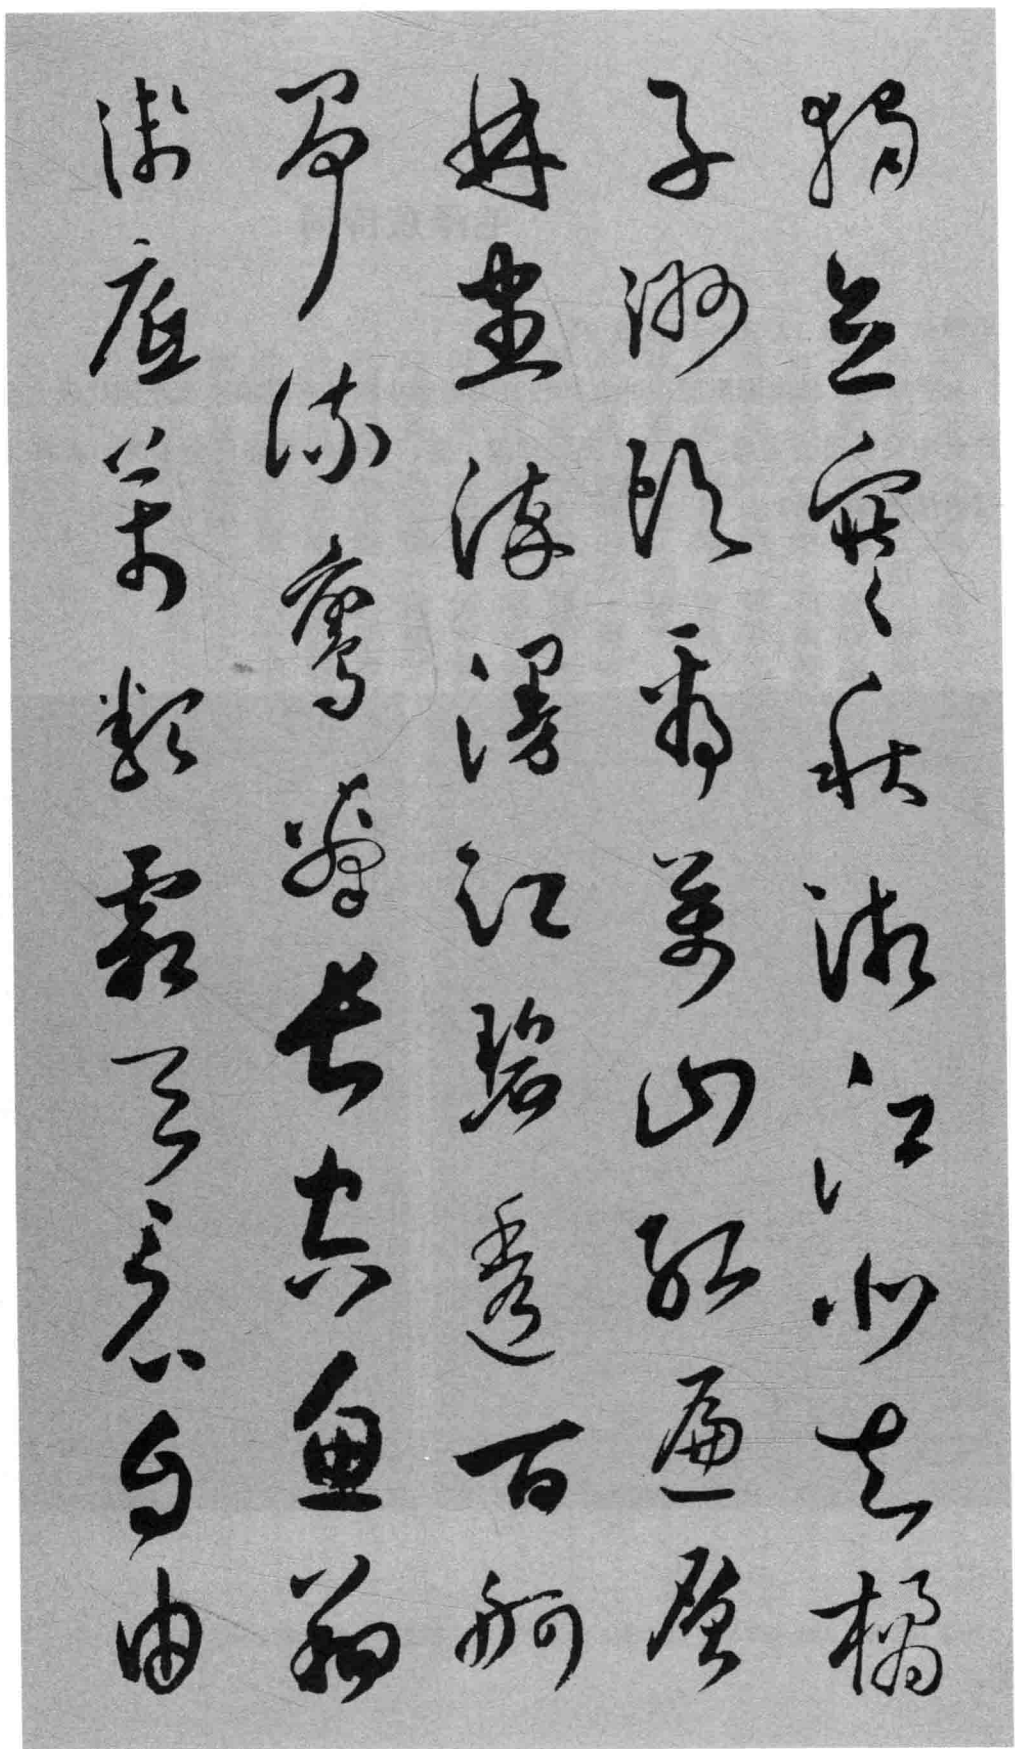 獨立寒秋湘江北去橘
子洲頭看萬山紅遍層
林盡染漫江碧透百舸
爭流鷹擊長空魚翔
淺底萬類霜天競自由